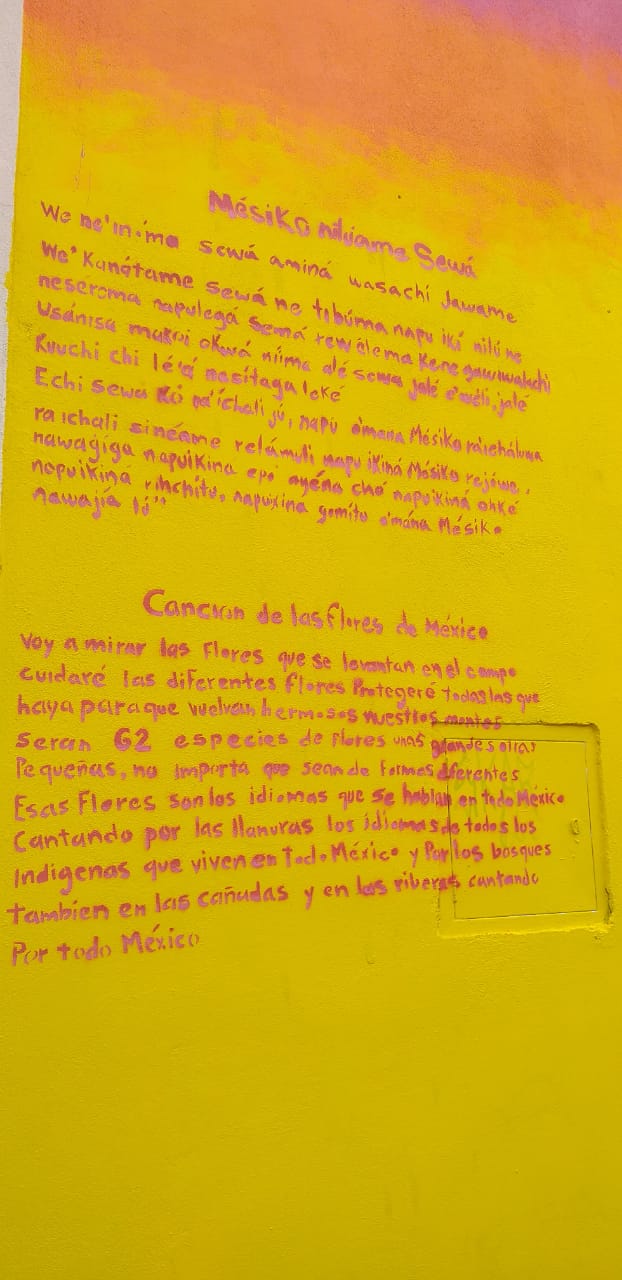 Mésiko nilúame Sewá
We ne'inima sewá aminá wasachí Jawame
We' Kanátame sewá ne tibúma napu ikí nilú ne
neseroma napulegá semá rewélema Kene gawiwalachi
Usánisa makoi okwá níima alé sewa jalé e'wéli, jalé
Kuuchi chi lé'á nasítaga loké
Echi sewa Ko ra'íchali jú, napu o'mana Mésiko ra'icháluwa
ra'ichali sinéame relámuli napu ikiná Mésiko rejówe,
nawagíga napuikina epó ayéna chó napuikiná ohké
napuikiná rihchítu, napuikina gomítu o'mána Mésiko
nawajía
Cancion de las flores de México
Voy a mirar las Flores que se levantan en el campo
cuidaré las diferentes flores Protegeré todas las que
haya para que vuelvan hermosos nuestros montes
Seran 62 especies de flores unas grandes otras
Pequeñas, no importa que sean de formas diferentes
Esas Flores son los idiomas que se hablan en todo México
Cantando por las llanuras los idiomas de todos los
Indigenas que viven en Todo México y Por los bosques
tambien en las cañadas y en las riberas cantando
Por todo México